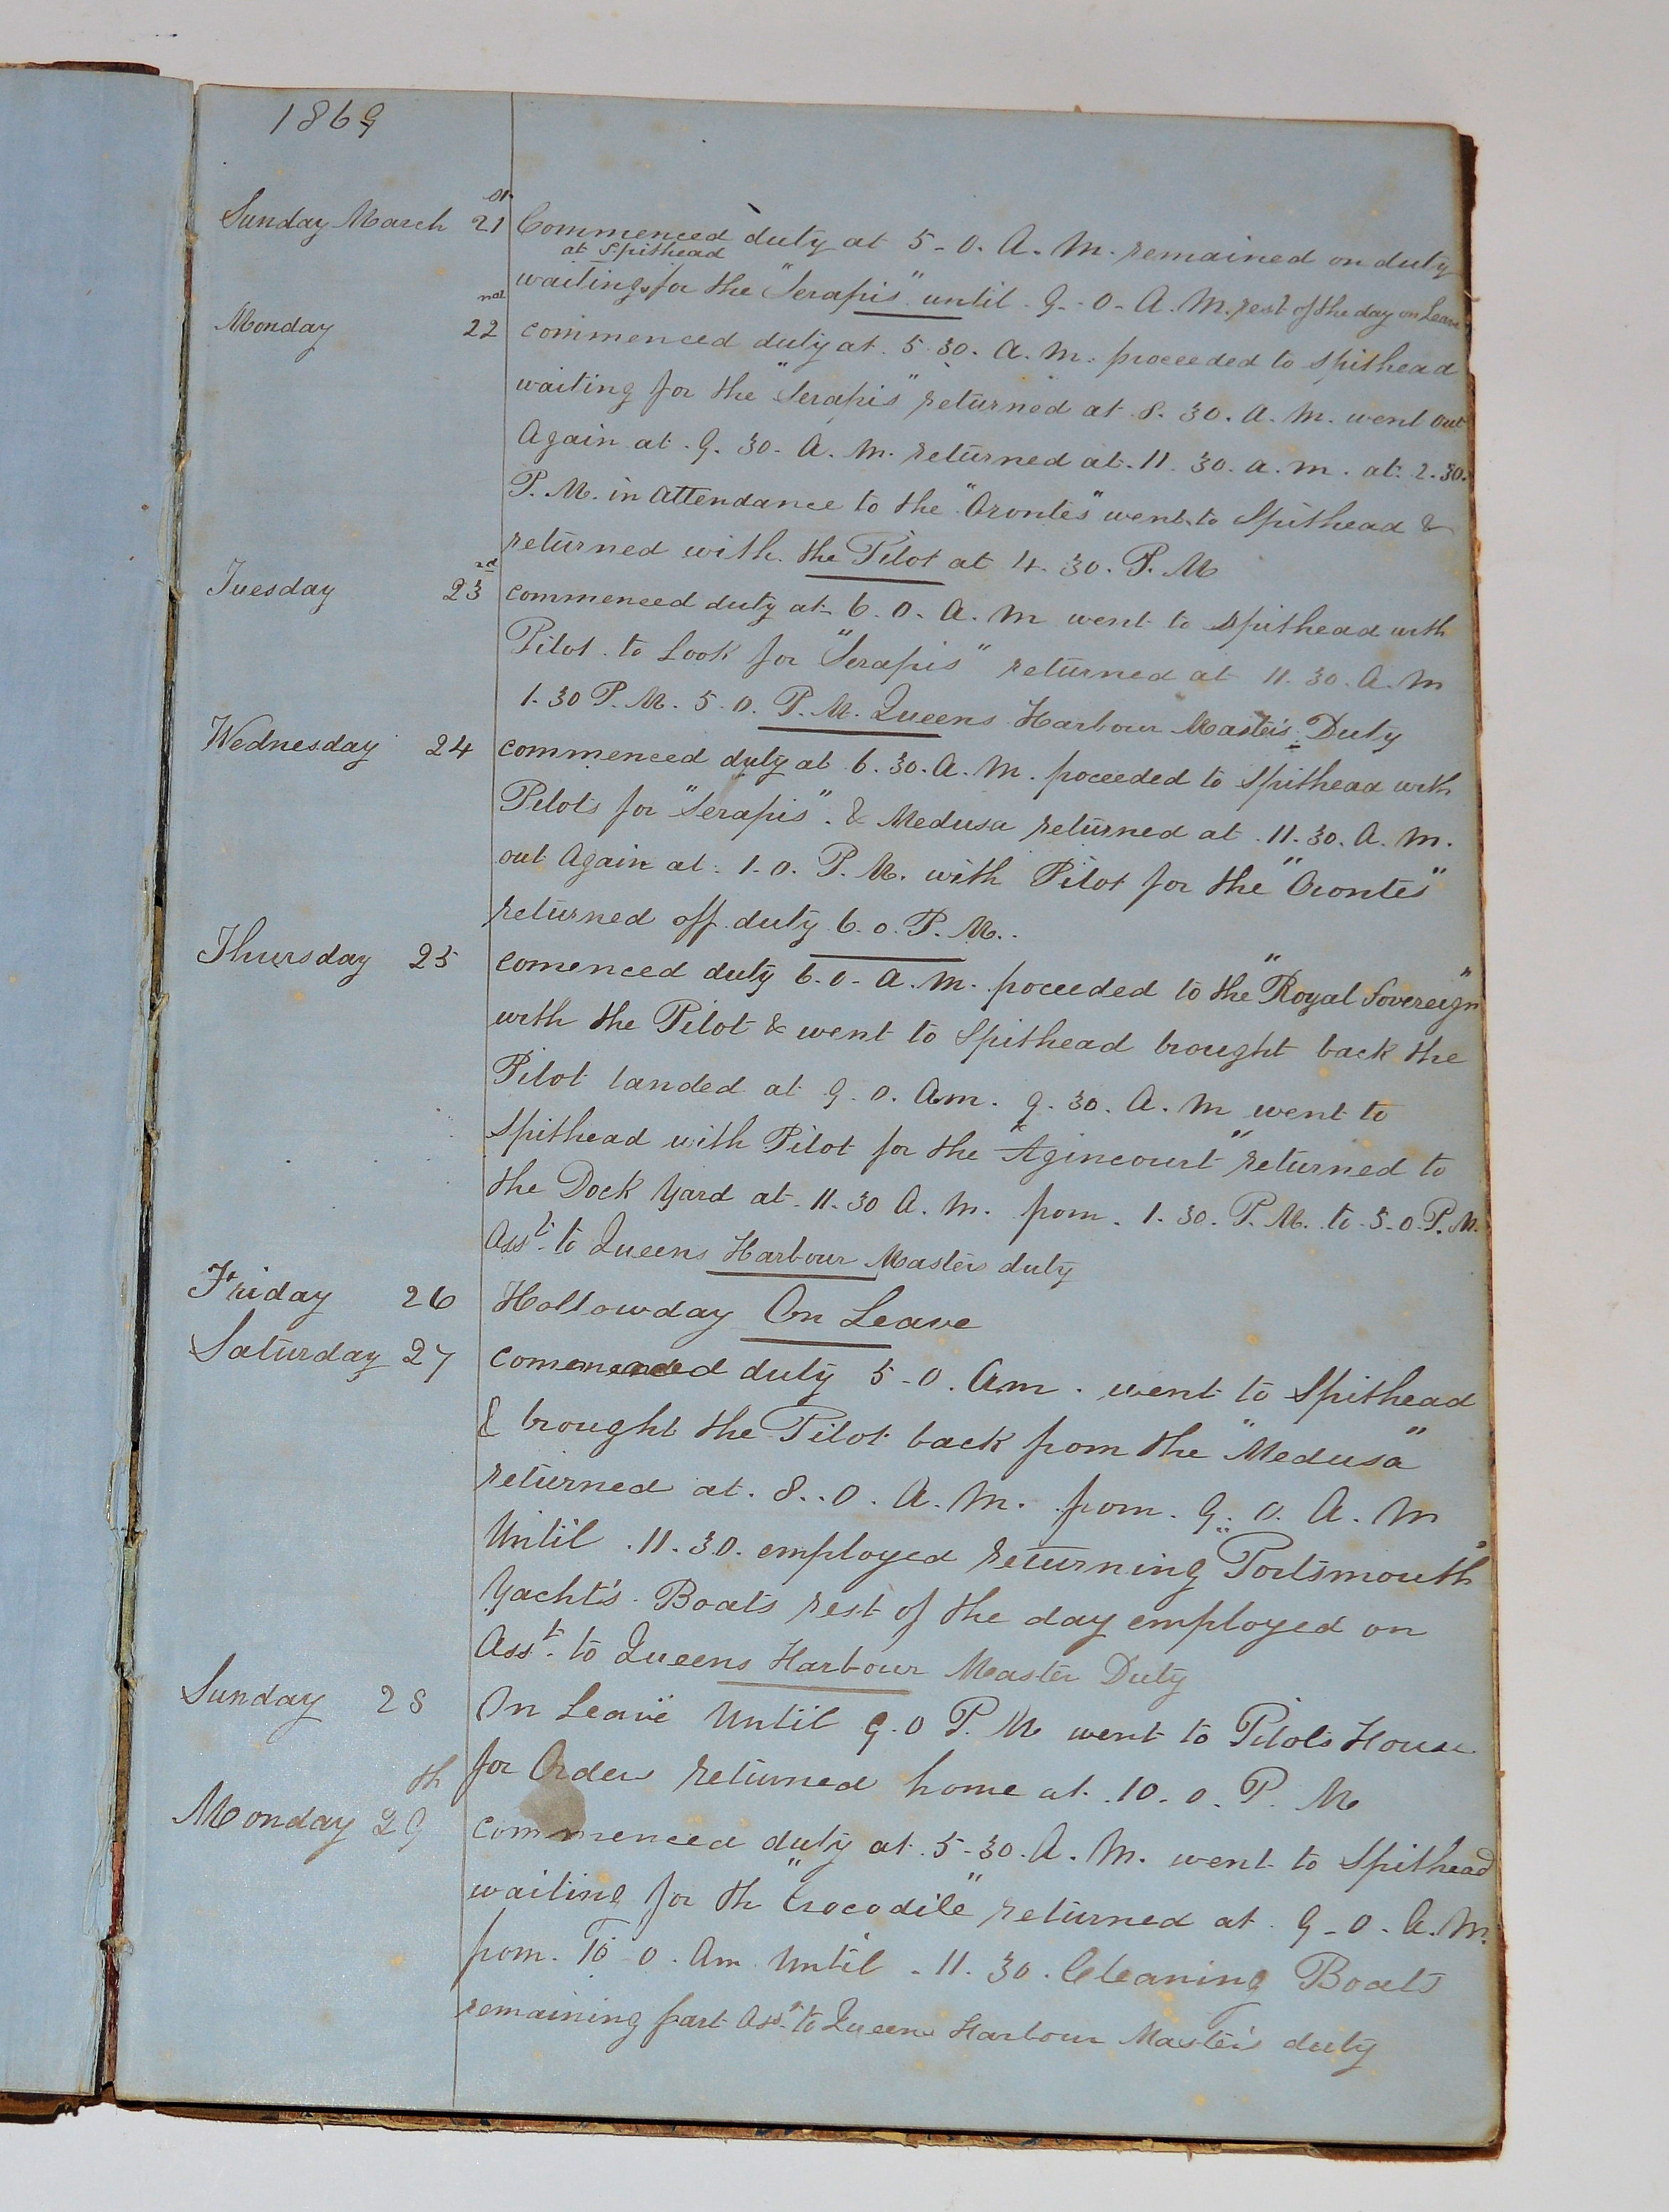 1869
Sunday March 21st Commenced duty at 5-0. A. M. remained on duty
at Spithead
waiting for the "Serapis" until 9-0-A. M. rest of the day on Leave
Monday 22nd commenced duty at 5.30. A. M. proceeded to Spithead
waiting for the "Serapis" returned at 8.30. A. M. went out
Again at 9.30. A. M. returned at 11.30. a. m. at 2.30.
P. M. in Attendance to the "Orontes" went to Spithead &
returned with the Pilot at 4.30. P. M
Tuesday 23rd commenced duty at 6.0. A. M went to Spithead with
Pilot to Look for "Serapis" returned at 11.30. A. M
1.30 P. M. 5.0. P. M. Queens Harbour Master's Duty
Wednesday 24 commenced duty at 6.30. A. M. proceeded to Spithead with
Pilots for "Serapis". & Medusa returned at 11.30. A. M.
out Again at 1.0. P. M. with Pilot for the "Orontes"
returned off duty 6.0. P. M..
Thursday 25 comenced duty 6.0-A. M. proceeded to the "Royal Sovereign"
with the Pilot & went to Spithead brought back the
Pilot landed at 9.0. Am. 9.30. A. M went to
Spithead with Pilot for the "Agincourt" returned to
the Dock Yard at 11.30 A. M. from. 1.30. P. M. to 5.0. P. M.
Asst. to Queens Harbour Masters duty
Friday 26 Hollowday On Leave
Saturday 27 comenenced duty 5-0. Am. went to Spithead
& brought the Pilot back from the "Medusa"
returned at. 8..0. A. M. from. 9.0. A. M
Until .11.30. employed returning "Portsmouth"
Yacht's Boats rest of the day employed on
Asst. to Queens Harbour Master Duty
Sunday 28 On Leave Until 9.0 P. M went to Pilots House
for Orders returned home at .10-0. P. M
Monday 29th commenced duty at 5-30. A. M. went to Spithead
waiting for th "Crocodile" returned at 9-0-A. M.
from. 10-0. Am Until -11.30. Cleaning Boats
remaining part Asst. to Queens Harbour Master's duty